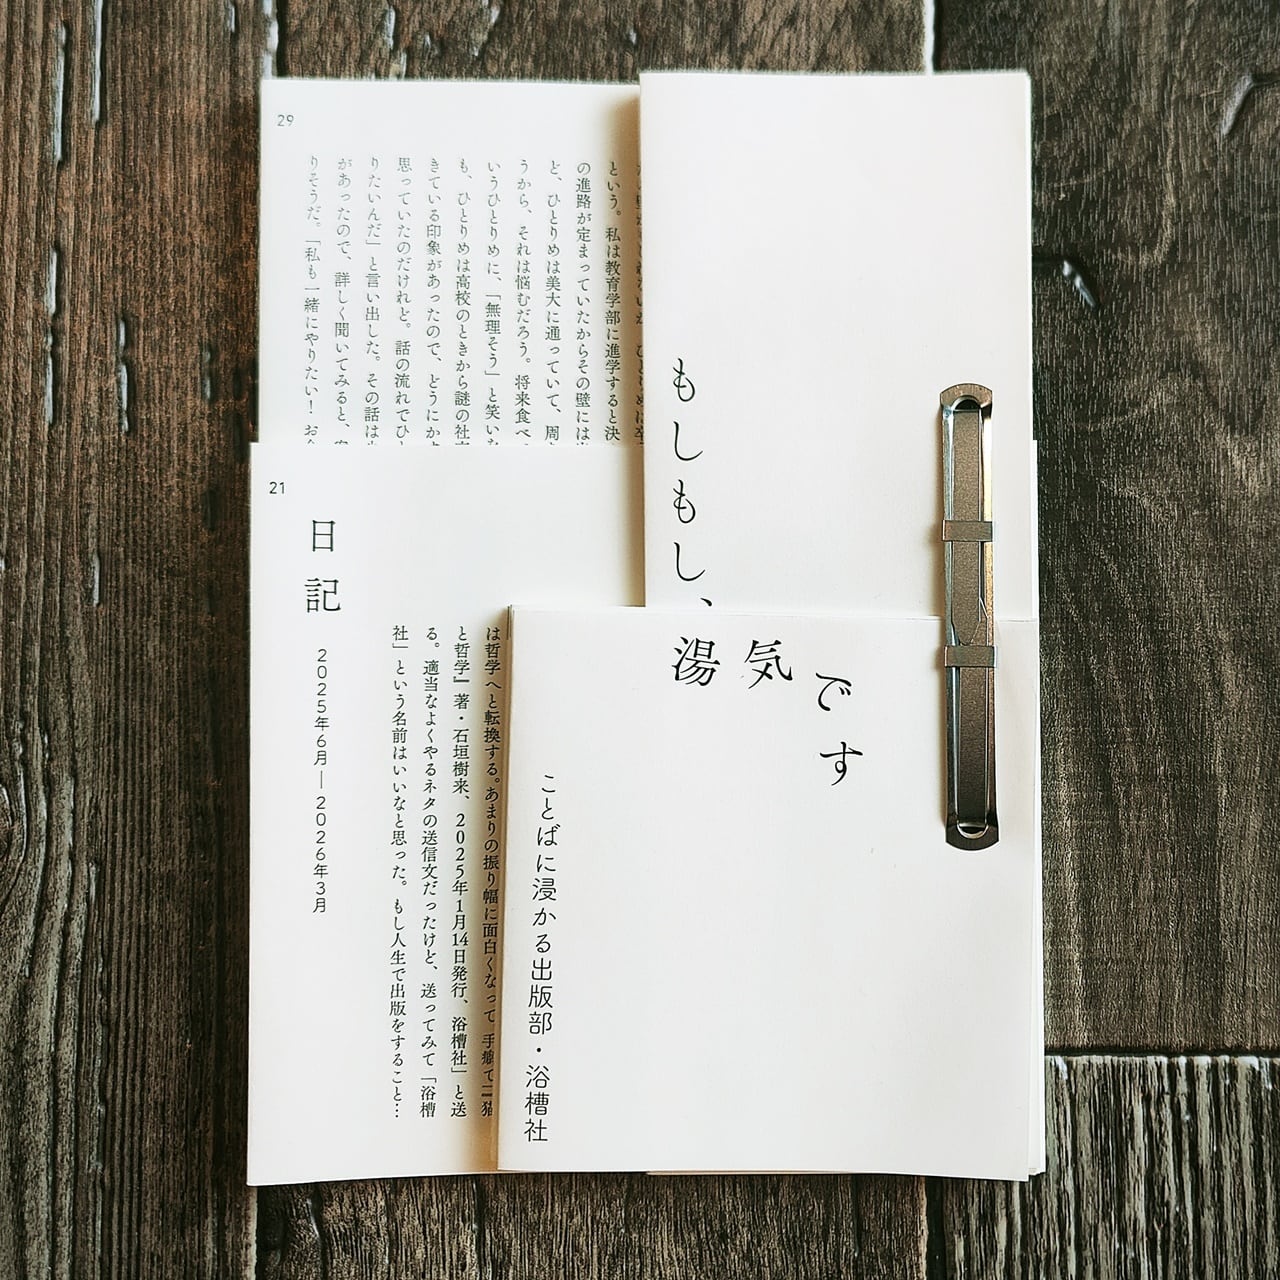 もしもし、
湯気です
ことばに浸かる出版部・浴槽社
29
という。私は教育学部に進学すると決
の進路が定まっていたからその壁には
ど、ひとりめは美大に通っていて、周
うから、それは悩むだろう。将来食べ
いうひとりめに、「無理そう」と笑いな
も、ひとりめは高校のときから謎の社
きている印象があったので、どうにか
思っていたのだけれど。話の流れでひと
りたいんだ」と言い出した。その話は
があったので、詳しく聞いてみると、
りそうだ。「私も一緒にやりたい！お
21
日記
2025年6月—2026年3月
は哲学へと転換する。あまりの振り幅に面白くなって
と哲学』著・石垣樹来、2025年1月14日発行、浴槽社」と送
る。適当なよくやるネタの送信文だったけど、送ってみて「浴槽
社」という名前はいいなと思った。もし人生で出版をすること…